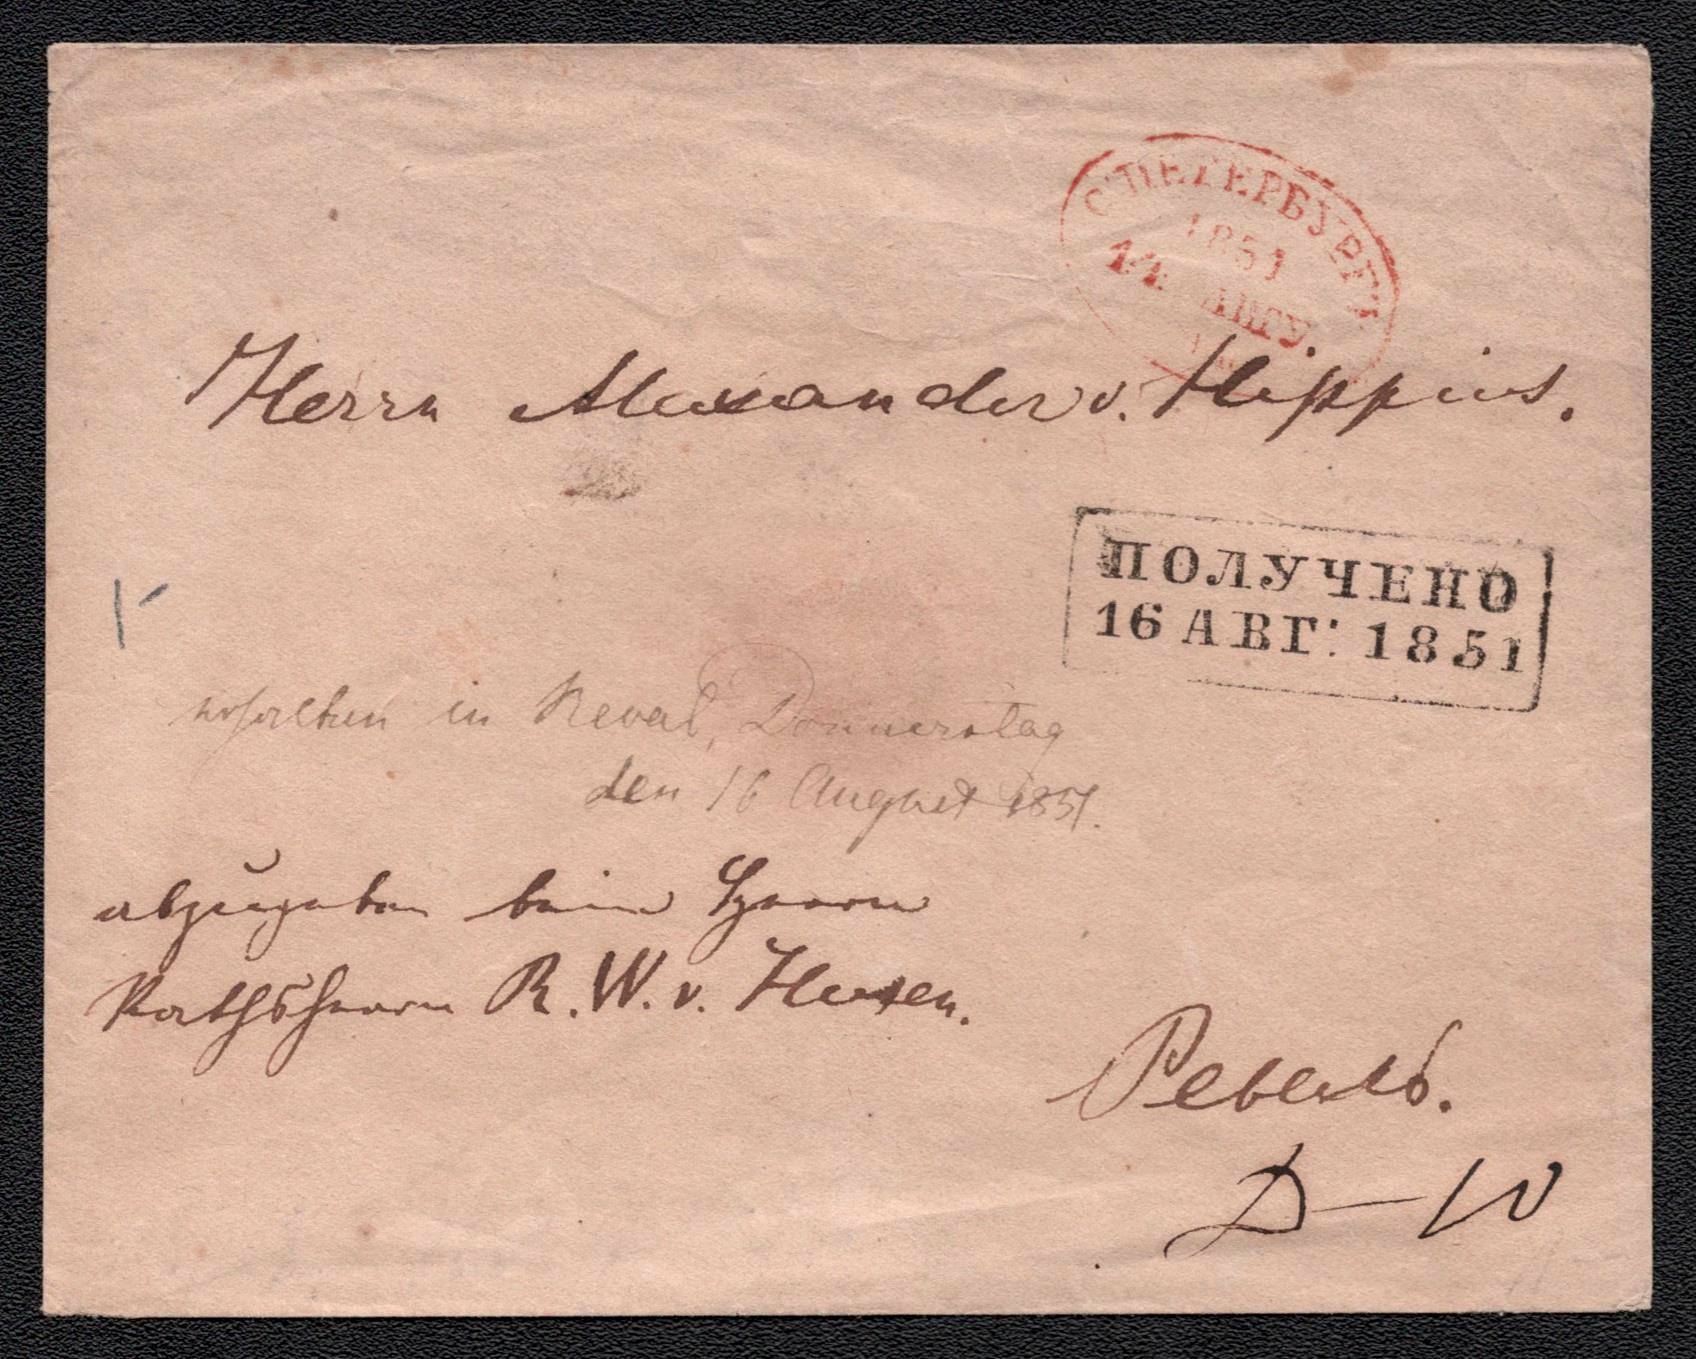 С.ПЕТЕРБУРГЪ
1851
14 АВГУ.
Herrn Alexander v. Hippius.
ПОЛУЧЕНО
16 АВГ: 1851
erhalten in Reval, Donnerstag
den 16 August 1851.
abzugeben beim Herrn
Rathsherrn R. W. v. Husen.
Ревель.
D – 10